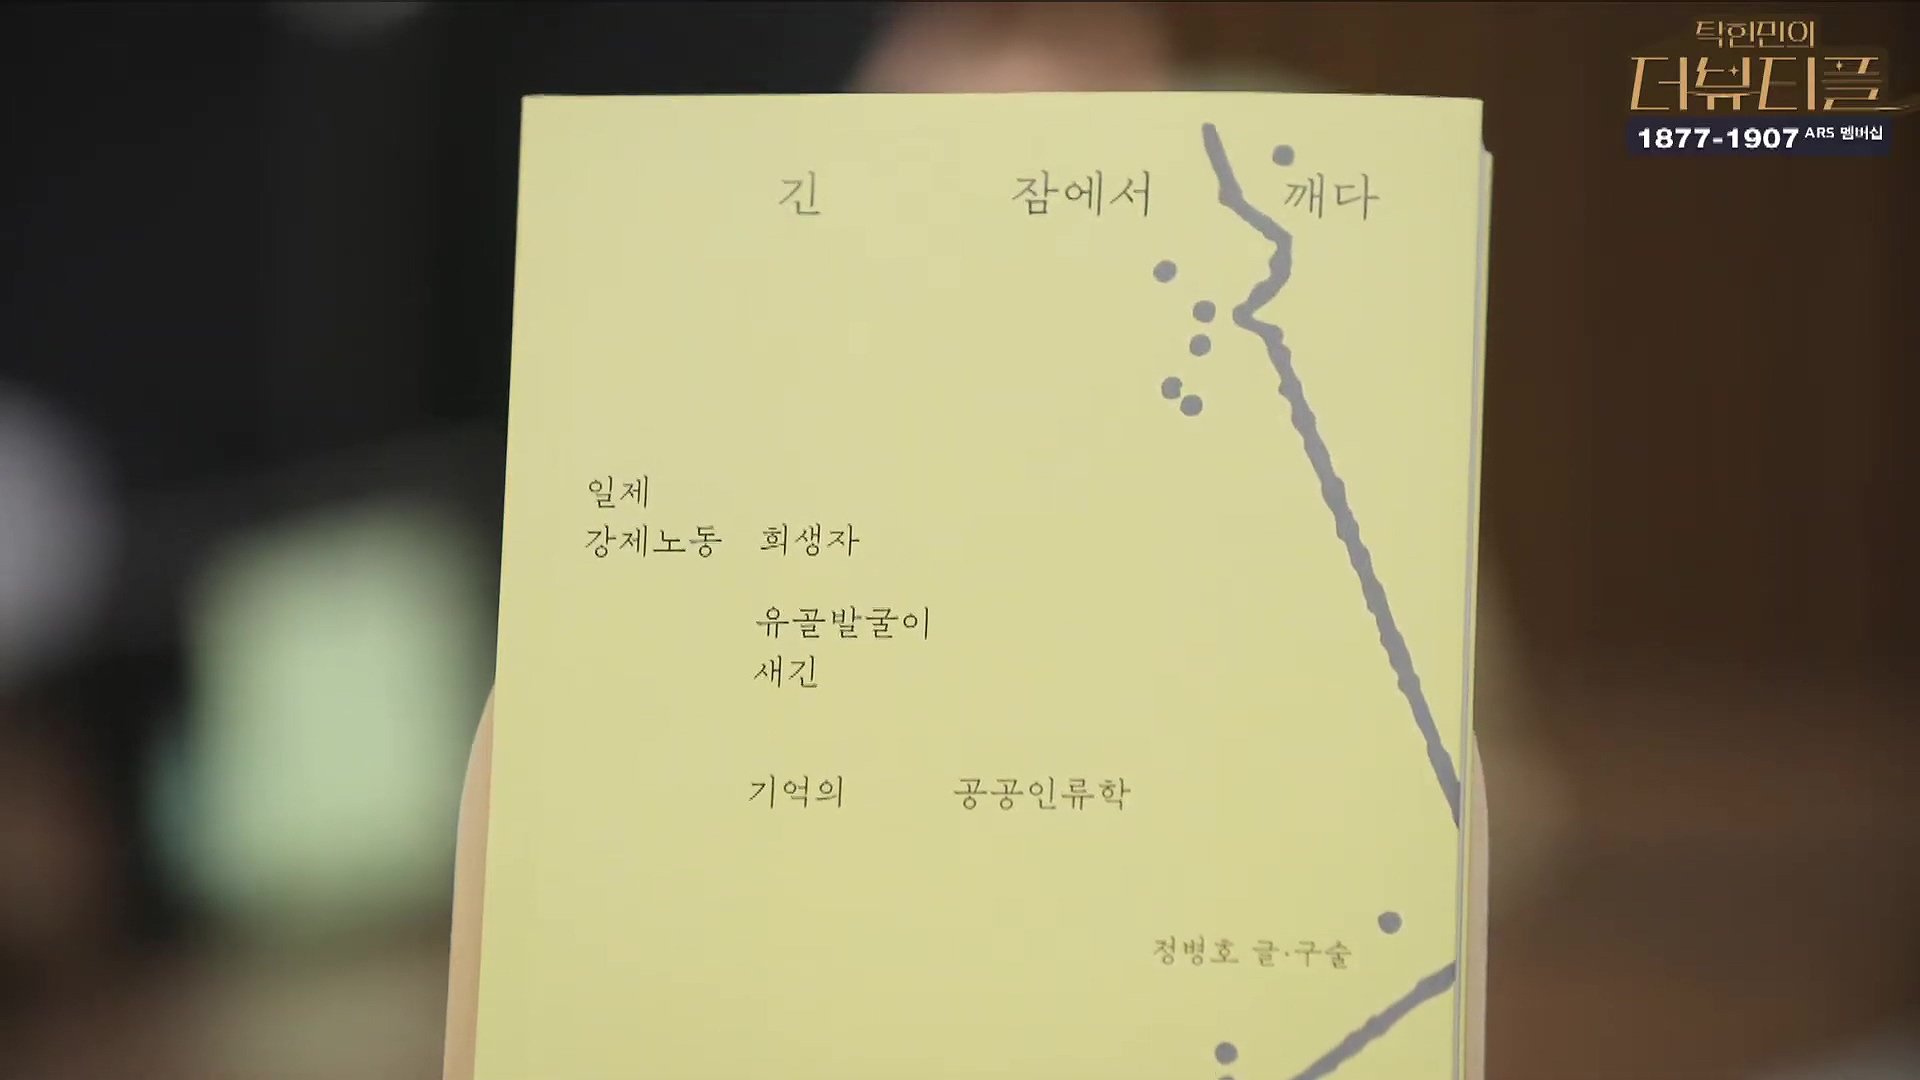 탁현민의
더뷰티플
1877-1907 ARS 멤버십
긴 잠에서 깨다
일제
강제노동 희생자
유골발굴이
새긴
기억의 공공인류학
정병호 글·구술